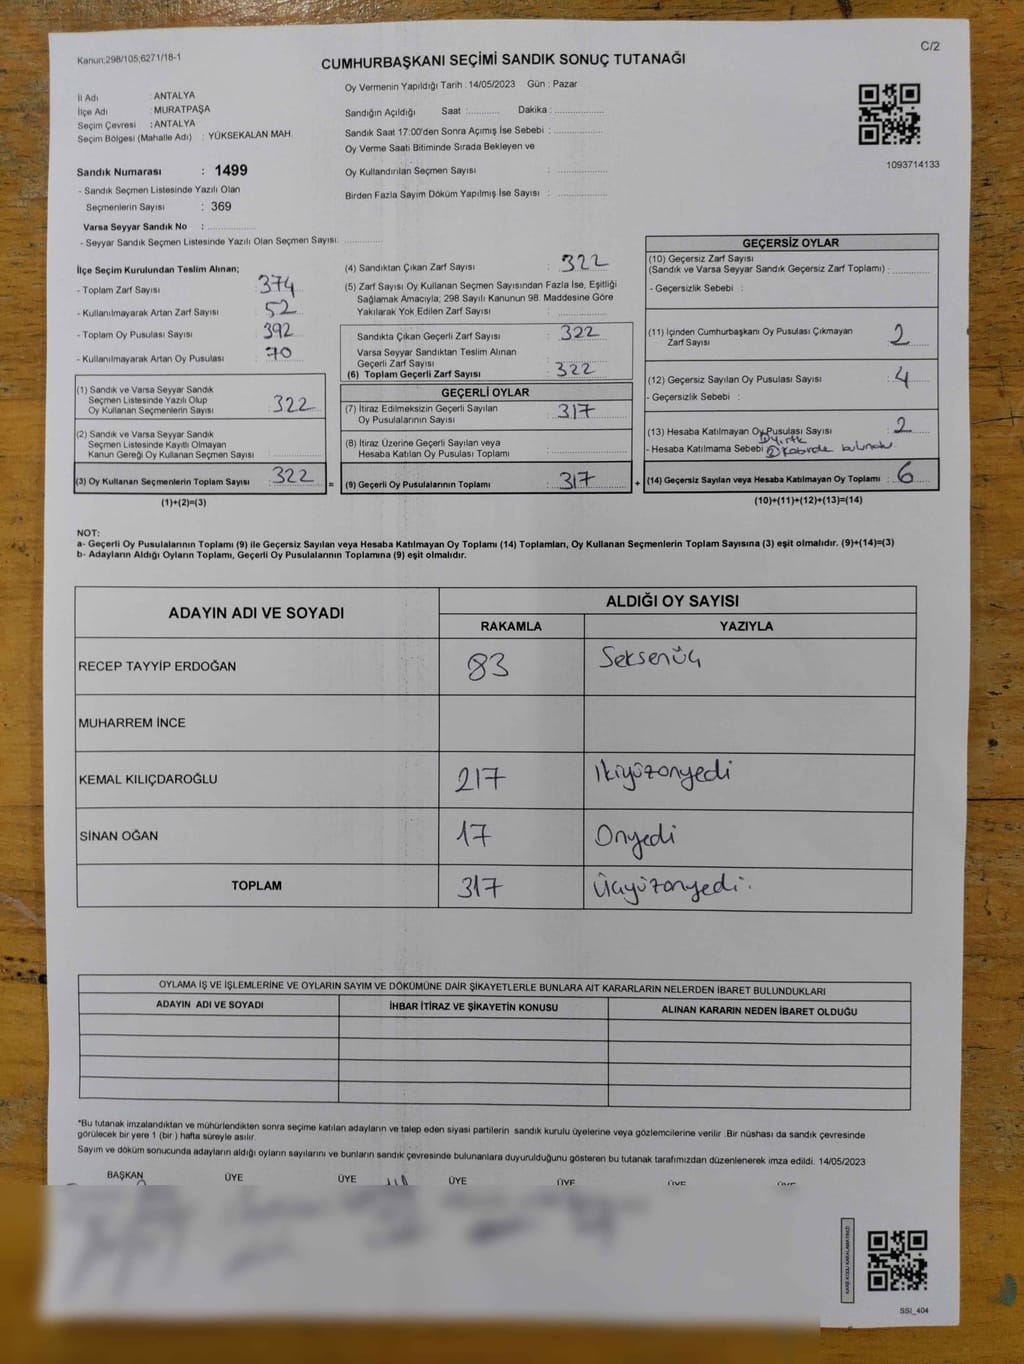 Kanun:298/105,6271/18-1
C/2
CUMHURBAŞKANI SEÇİMİ SANDIK SONUÇ TUTANAĞI
Oy Vermenin Yapıldığı Tarih : 14/05/2023 Gün : Pazar
İl Adı : ANTALYA
İlçe Adı : MURATPAŞA
Seçim Çevresi : ANTALYA
Seçim Bölgesi (Mahalle Adı) : YÜKSEKALAN MAH.
Sandığın Açıldığı Saat :............ Dakika :....................
Sandık Saat 17:00'den Sonra Açımış İse Sebebi : ....................
Oy Verme Saati Bitiminde Sırada Bekleyen ve
Oy Kullandırılan Seçmen Sayısı : ....................
Birden Fazla Sayım Döküm Yapılmış İse Sayısı : ....................
1093714133
Sandık Numarası : 1499
- Sandık Seçmen Listesinde Yazılı Olan
Seçmenlerin Sayısı : 369
Varsa Seyyar Sandık No : ....................
- Seyyar Sandık Seçmen Listesinde Yazılı Olan Seçmen Sayısı: ....................
İlçe Seçim Kurulundan Teslim Alınan;
- Toplam Zarf Sayısı : 374
- Kullanılmayarak Artan Zarf Sayısı : 52
- Toplam Oy Pusulası Sayısı : 392
- Kullanılmayarak Artan Oy Pusulası : 70
(1) Sandık ve Varsa Seyyar Sandık
Seçmen Listesinde Yazılı Olup
Oy Kullanan Seçmenlerin Sayısı : 322
(2) Sandık ve Varsa Seyyar Sandık
Seçmen Listesinde Kayıtlı Olmayan
Kanun Gereği Oy Kullanan Seçmen Sayısı : ....................
(3) Oy Kullanan Seçmenlerin Toplam Sayısı : 322 =
(1)+(2)=(3)
(4) Sandıktan Çıkan Zarf Sayısı : 322
(5) Zarf Sayısı Oy Kullanan Seçmen Sayısından Fazla İse, Eşitliği
Sağlamak Amacıyla, 298 Sayılı Kanunun 98. Maddesine Göre
Yakılarak Yok Edilen Zarf Sayısı : ....................
Sandıkta Çıkan Geçerli Zarf Sayısı : 322
Varsa Seyyar Sandıktan Teslim Alınan
Geçerli Zarf Sayısı : ....................
(6) Toplam Geçerli Zarf Sayısı : 322
GEÇERLİ OYLAR
(7) İtiraz Edilmeksizin Geçerli Sayılan
Oy Pusulalarının Sayısı : 317
(8) İtiraz Üzerine Geçerli Sayılan veya
Hesaba Katılan Oy Pusulası Toplamı : ....................
(9) Geçerli Oy Pusulalarının Toplamı : 317 +
GEÇERSİZ OYLAR
(10) Geçersiz Zarf Sayısı
(Sandık ve Varsa Seyyar Sandık Geçersiz Zarf Toplamı) : ............
- Geçersizlik Sebebi :
(11) İçinden Cumhurbaşkanı Oy Pusulası Çıkmayan
Zarf Sayısı : 2
(12) Geçersiz Sayılan Oy Pusulası Sayısı : 4
- Geçersizlik Sebebi :
(13) Hesaba Katılmayan Oy Pusulası Sayısı : 2
① yırtık
- Hesaba Katılmama Sebebi ② Kabirde bulundu
(14) Geçersiz Sayılan veya Hesaba Katılmayan Oy Toplamı : 6
(10)+(11)+(12)+(13)=(14)
NOT:
a- Geçerli Oy Pusulalarının Toplamı (9) ile Geçersiz Sayılan veya Hesaba Katılmayan Oy Toplamı (14) Toplamları, Oy Kullanan Seçmenlerin Toplam Sayısına (3) eşit olmalıdır. (9)+(14)=(3)
b- Adayların Aldığı Oyların Toplamı, Geçerli Oy Pusulalarının Toplamına (9) eşit olmalıdır.
ADAYIN ADI VE SOYADI
ALDIĞI OY SAYISI
RAKAMLA YAZIYLA
RECEP TAYYİP ERDOĞAN 83 Seksenüç
MUHARREM İNCE
KEMAL KILIÇDAROĞLU 217 İkiyüzonyedi
SİNAN OĞAN 17 Onyedi
TOPLAM 317 Üçyüzonyedi.
OYLAMA İŞ VE İŞLEMLERİNE VE OYLARIN SAYIM VE DÖKÜMÜNE DAİR ŞİKAYETLERLE BUNLARA AİT KARARLARIN NELERDEN İBARET BULUNDUKLARI
ADAYIN ADI VE SOYADI İHBAR İTİRAZ VE ŞİKAYETİN KONUSU ALINAN KARARIN NEDEN İBARET OLDUĞU
*Bu tutanak imzalandıktan ve mühürlendikten sonra seçime katılan adayların ve talep eden siyasi partilerin sandık kurulu üyelerine veya gözlemcilerine verilir .Bir nüshası da sandık çevresinde
görülecek bir yere 1 (bir ) hafta süreyle asılır.
Sayım ve döküm sonucunda adayların aldığı oyların sayılarını ve bunların sandık çevresinde bulunanlara duyurulduğunu gösteren bu tutanak tarafımızdan düzenlenerek imza edildi. 14/05/2023
BAŞKAN ÜYE ÜYE ÜYE ÜYE ÜYE ÜYE
SSI_404